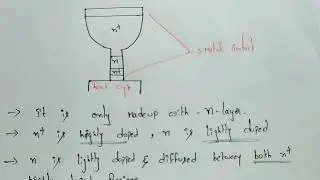 n+
metal contact
n
n+
→ It is only madeup with n-layer.
→ n+ is highly doped, n is lightly doped
→ n is lightly doped & diffused between both n+